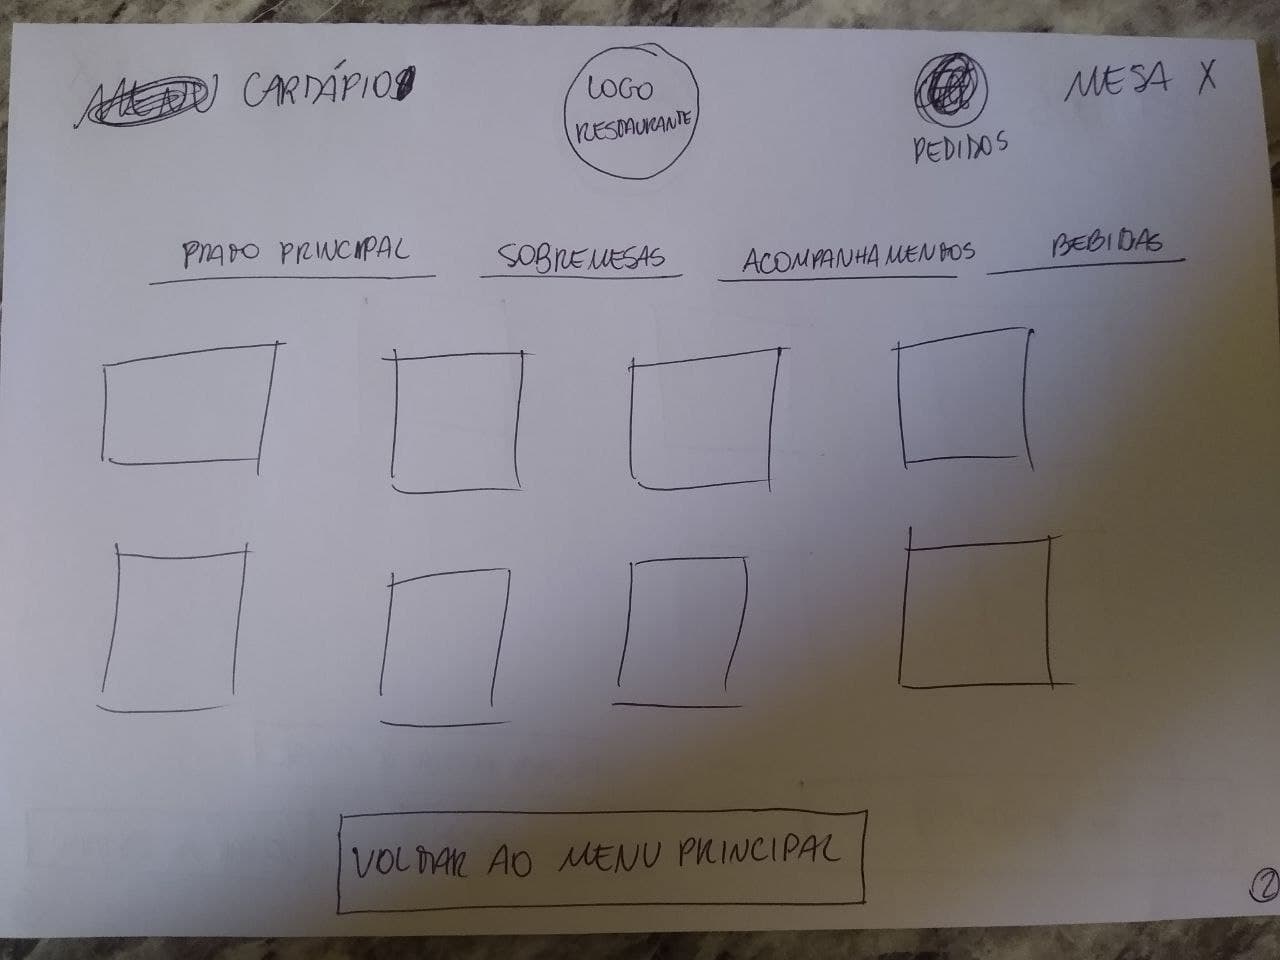 CARDÁPIO
LOGO
RESTAURANTE
PEDIDOS
MESA X
PRATO PRINCIPAL
SOBREMESAS
ACOMPANHAMENTOS
BEBIDAS
VOLTAR AO MENU PRINCIPAL
2